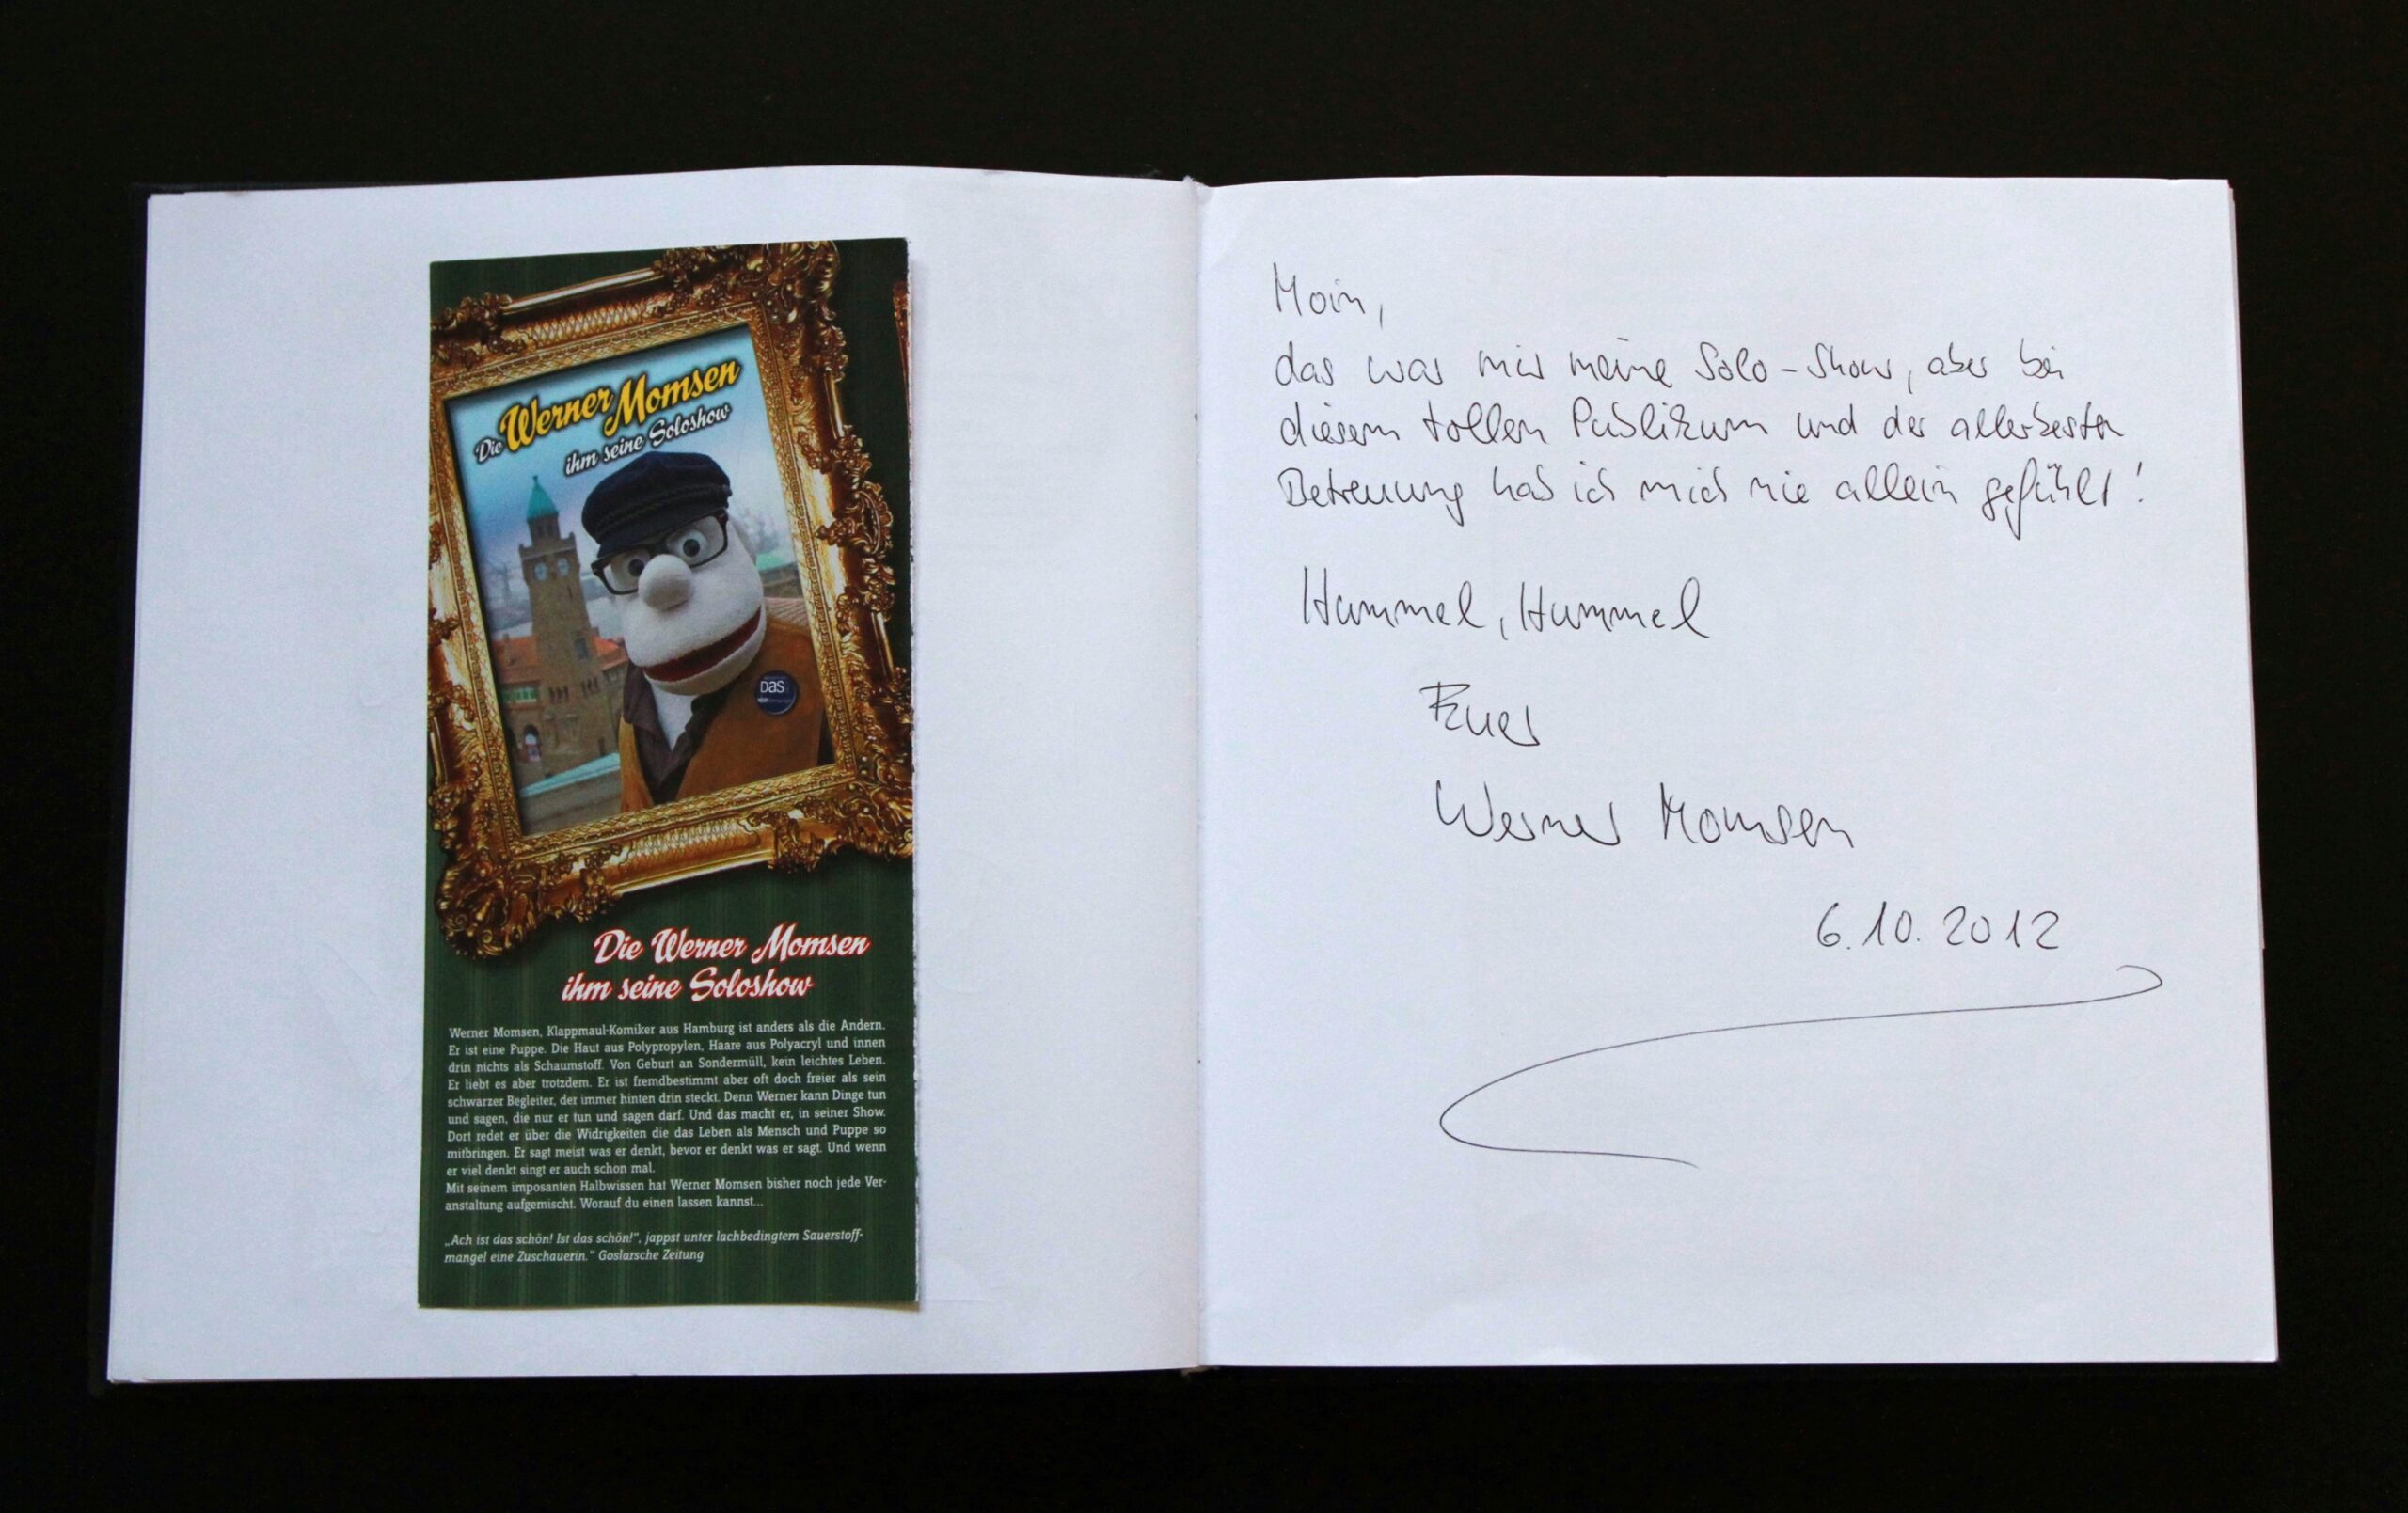 Die Werner Momsen
ihm seine Soloshow
DAS
Die Werner Momsen
ihm seine Soloshow
Werner Momsen, Klappmaul-Komiker aus Hamburg ist anders als die Andern.
Er ist eine Puppe. Die Haut aus Polypropylen, Haare aus Polyacryl und innen
drin nichts als Schaumstoff. Von Geburt an Sondermüll, kein leichtes Leben.
Er liebt es aber trotzdem. Er ist fremdbestimmt aber oft doch freier als sein
schwarzer Begleiter, der immer hinten drin steckt. Denn Werner kann Dinge tun
und sagen, die nur er tun und sagen darf. Und das macht er, in seiner Show.
Dort redet er über die Widrigkeiten die das Leben als Mensch und Puppe so
mitbringen. Er sagt meist was er denkt, bevor er denkt was er sagt. Und wenn
er viel denkt singt er auch schon mal.
Mit seinem imposanten Halbwissen hat Werner Momsen bisher noch jede Ver-
anstaltung aufgemischt. Worauf du einen lassen kannst...
„Ach ist das schön! Ist das schön!“, jappst unter lachbedingtem Sauerstoff-
mangel eine Zuschauerin.“ Goslarsche Zeitung
Moin,
das war mir meine Solo-Show, aber bei
diesem tollen Publikum und der allerbesten
Betreuung hab ich mich nie allein gefühlt!
Hummel, Hummel
Euer
Werner Momsen
6.10.2012